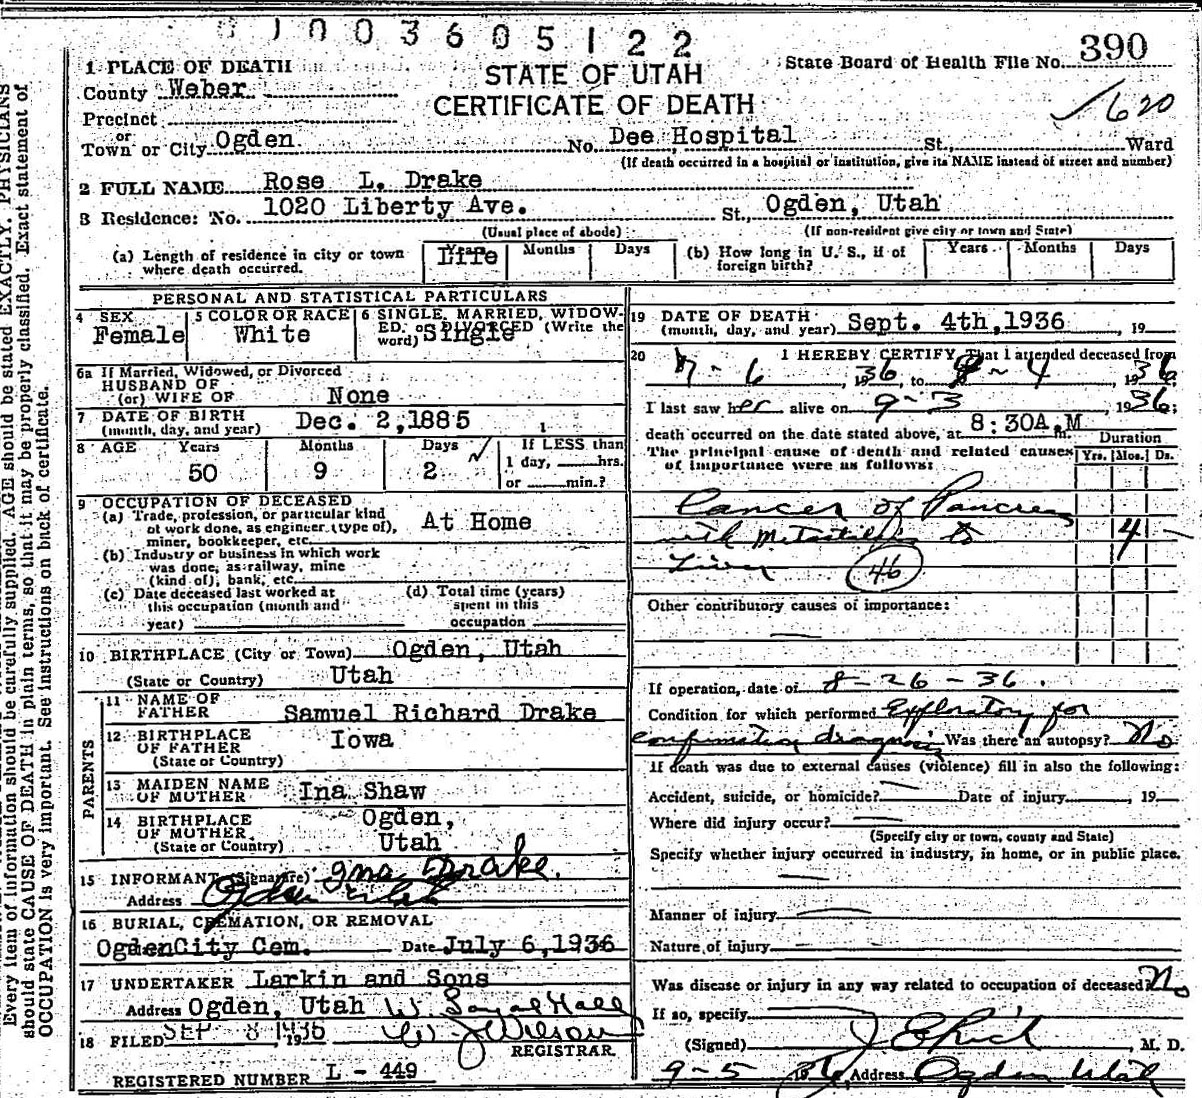 0 1 0 0 3 6 0 5 1 2 2
1 PLACE OF DEATH
STATE OF UTAH
CERTIFICATE OF DEATH
State Board of Health File No. 390
620
County Weber
Precinct
or
Town or City Ogden No. Dee Hospital St., Ward
(If death occurred in a hospital or institution, give its NAME instead of street and number)
2 FULL NAME Rose L. Drake
3 Residence: No. 1020 Liberty Ave. St., Ogden, Utah
(Usual place of abode) (If non-resident give city or town and State)
(a) Length of residence in city or town where death occurred. Years Life Months Days
(b) How long in U. S., if of foreign birth? Years Months Days
PERSONAL AND STATISTICAL PARTICULARS
4 SEX Female
5 COLOR OR RACE White
6 SINGLE, MARRIED, WIDOWED, or DIVORCED (Write the word) Single
6a If Married, Widowed, or Divorced
HUSBAND OF
(or) WIFE OF None
7 DATE OF BIRTH
(month, day, and year) Dec. 2,1885 1
8 AGE Years Months Days If LESS than
50 9 2 1 day, hrs.
or min.?
9 OCCUPATION OF DECEASED
(a) Trade, profession, or particular kind
of work done, as engineer (type of),
miner, bookkeeper, etc. At Home
(b) Industry or business in which work
was done, as railway, mine
(kind of), bank, etc.
(c) Date deceased last worked at
this occupation (month and
year)
(d) Total time (years)
spent in this
occupation
10 BIRTHPLACE (City or Town) Ogden, Utah
(State or Country) Utah
PARENTS
11 NAME OF
FATHER Samuel Richard Drake
12 BIRTHPLACE
OF FATHER Iowa
(State or Country)
13 MAIDEN NAME
OF MOTHER Ina Shaw
14 BIRTHPLACE
OF MOTHER Ogden,
(State or Country) Utah
15 INFORMANT (Signature) Ina Drake.
Address Ogden Utah
16 BURIAL, CREMATION, OR REMOVAL
OgdenCity Cem. Date July 6,1936
17 UNDERTAKER Larkin and Sons
Address Ogden, Utah W. Hall
18 FILED SEP 8 1936 W J Wilson
REGISTRAR.
REGISTERED NUMBER L - 449
19 DATE OF DEATH
(month, day, and year) Sept. 4th,1936 , 19
20 I HEREBY CERTIFY, That I attended deceased from
7-6, 1936, to 9-4, 1936
I last saw her alive on 9-3, 1936;
death occurred on the date stated above, at 8:30A.M
The principal cause of death and related causes
of importance were as follows:
Duration
Yrs. Mos. Ds.
Cancer of Pancreas
with Metastasis to 4 -
Liver 46
Other contributory causes of importance:
If operation, date of 8-26-36.
Condition for which performed Exploratory for
confirmation diagnosis Was there an autopsy? No
If death was due to external causes (violence) fill in also the following:
Accident, suicide, or homicide? Date of injury , 19
Where did injury occur?
(Specify city or town, county and State)
Specify whether injury occurred in industry, in home, or in public place.
Manner of injury
Nature of injury
Was disease or injury in any way related to occupation of deceased? No
If so, specify
(Signed) J E Rich, M. D.
9-5 1936, Address Ogden Utah
Every item of information should be carefully supplied. AGE should be stated EXACTLY. PHYSICIANS
should state CAUSE OF DEATH in plain terms, so that it may be properly classified. Exact statement of
OCCUPATION is very important. See instructions on back of certificate.